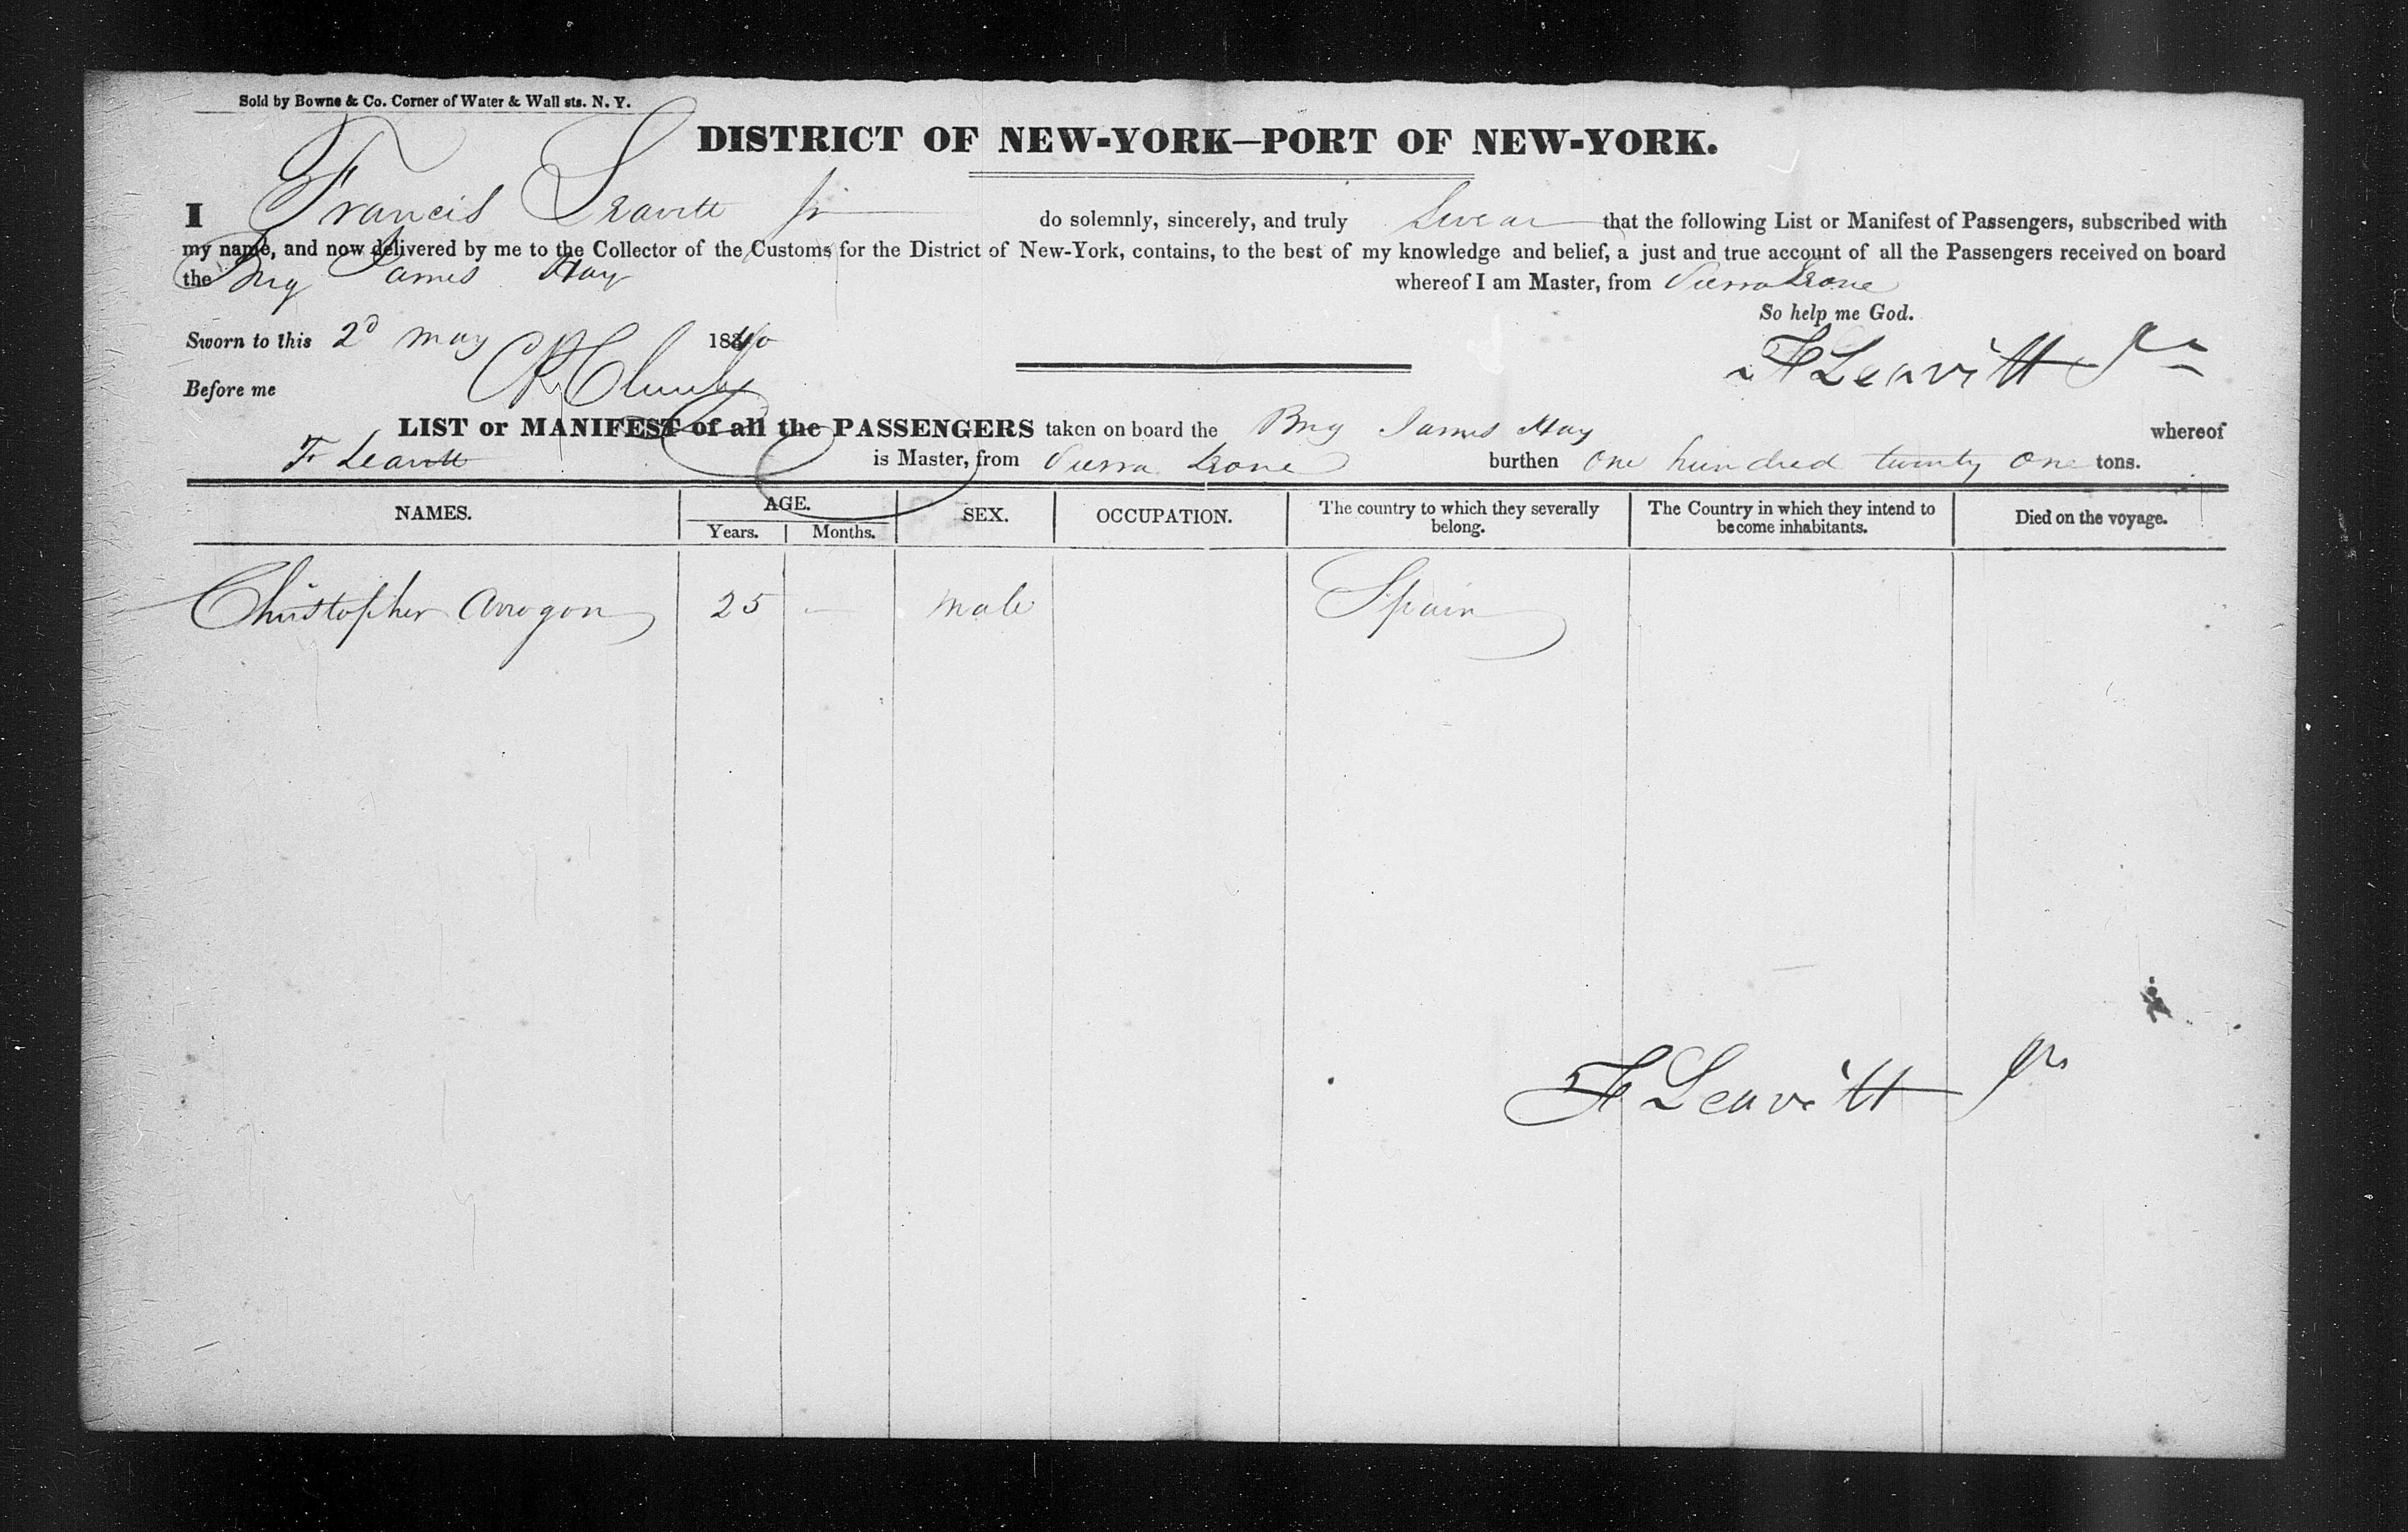 Sold by Bowne & Co. Corner of Water & Wall sts. N. Y.
DISTRICT OF NEW-YORK—PORT OF NEW-YORK.
I Francis Leavitt Jr do solemnly, sincerely, and truly Swear that the following List or Manifest of Passengers, subscribed with
my name, and now delivered by me to the Collector of the Customs for the District of New-York, contains, to the best of my knowledge and belief, a just and true account of all the Passengers received on board
the Brig James Hay whereof I am Master, from Sierra Leone
So help me God.
Sworn to this 2d May 1840 F Leavitt Jr
Before me
LIST or MANIFEST of all the PASSENGERS taken on board the Brig James Hay whereof
F Leavitt is Master, from Sierra Leone burthen One hundred twenty One tons.
NAMES. AGE. Years. Months. SEX. OCCUPATION. The country to which they severally belong. The Country in which they intend to become inhabitants. Died on the voyage.
Christopher Arrogon 25 — Male Spain
F Leavitt Jr